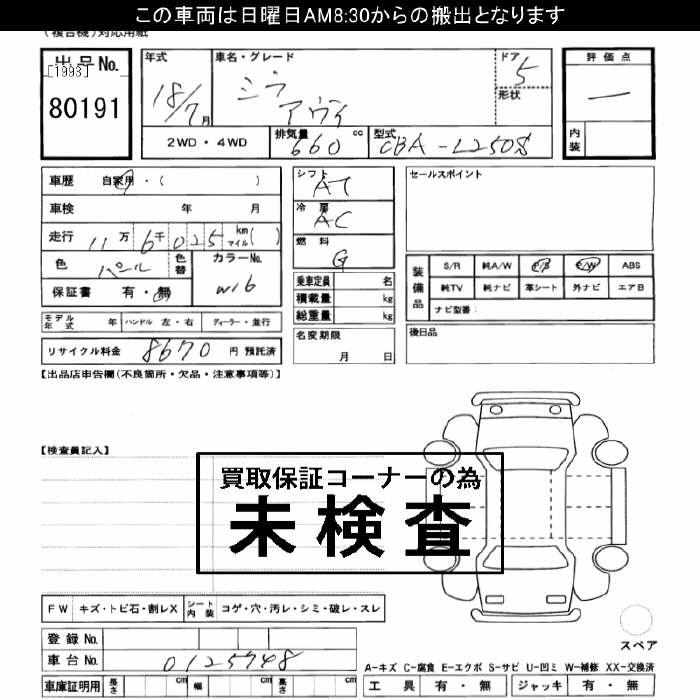 この車両は日曜日AM8:30からの搬出となります
(複合機)対応用紙
出品No.
[1993]
80191
年式
18/7月
車名・グレード
ミラ
アヴィ
ドア
5
形状
評価点
内装
2WD・4WD
排気量
660 cc
型式
CBA-L250S
車歴 自家用・( )
車検 年 月
走行 11万6千025 km マイル( )
色 パール
色替
カラーNo.
W16
保証書 有・無
モデル年式 年 ハンドル 左・右 ディーラー・並行
リサイクル料金 8670 円 預託済
シフト
AT
冷房
AC
燃料
G
乗車定員 名
積載量 kg
総重量 kg
名変期限
月 日
セールスポイント
装備品
S/R 純A/W P/S P/W ABS
純TV 純ナビ 革シート 外ナビ エアB
ナビ型番:
後日品
【出品店申告欄(不良箇所・欠品・注意事項等)】
【検査員記入】
買取保証コーナーの為
未検査
FW キズ・トビ石・割レX シート内装 コゲ・穴・汚レ・シミ・破レ・スレ
登録No.
車台No. 0125748
車庫証明用 長さ cm 幅 cm 高さ cm
スペア
A-キズ C-腐食 E-エクボ S-サビ U-凹ミ W-補修 XX-交換済
工具 有・無 ジャッキ 有・無